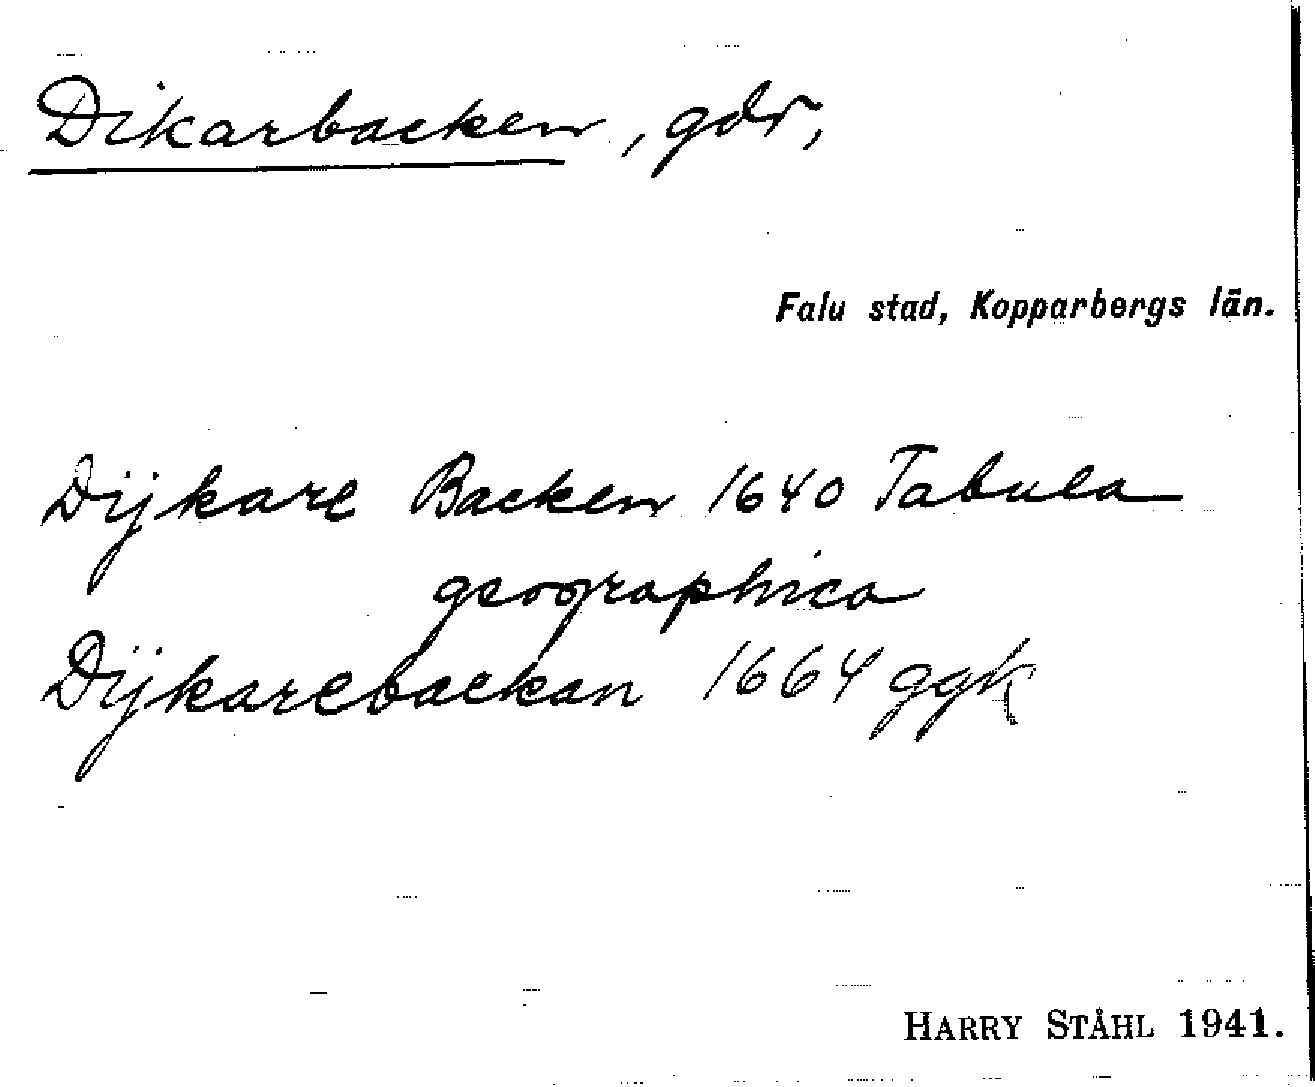 Dikarbacken, gdr,
Falu stad, Kopparbergs län.
Dijkare Backen 1640 Tabula
geographica
Dijkarebackan 1664 ggk
HARRY STÅHL 1941.